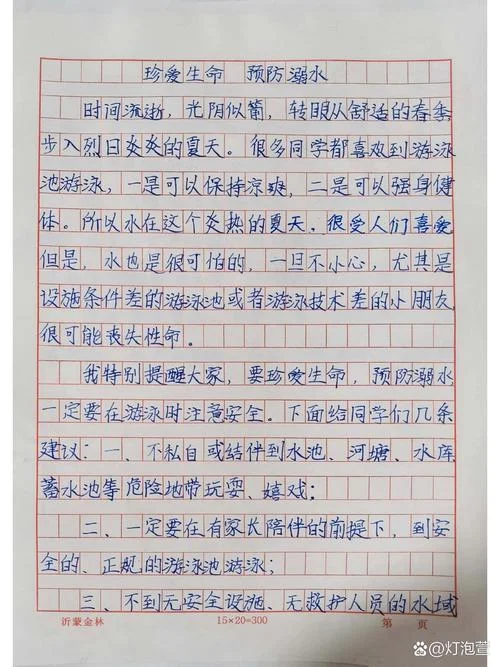 珍爱生命 预防溺水
时间流逝，光阴似箭，转眼从舒适的春季
步入烈日炎炎的夏天。很多同学都喜欢到游泳
池游泳，一是可以保持凉爽，二是可以强身健
体。所以水在这个炎热的夏天，很受人们喜爱
但是，水也是很可怕的，一旦不小心，尤其是
设施条件差的游泳池或者游泳技术差的小朋友
很可能丧失性命。
我特别提醒大家，要珍爱生命，预防溺水
一定要在游泳时注意安全。下面给同学们几条
建议：一、不私自或结伴到水池、河塘、水库
蓄水池等危险地带玩耍、嬉戏；
二、一定要在有家长陪伴的前提下，到安
全的、正规的游泳池游泳；
三、不到无安全设施、无救护人员的水域
沂蒙金林 15×20=300 第 页
@灯泡萱